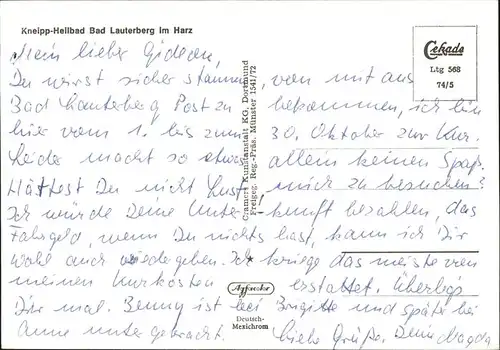 Kneipp-Heilbad Bad Lauterberg im Harz
Mein lieber Gideon,
Du wirst sicher staunen von mir aus
Bad Lauterberg Post zu bekommen, ich bin
hier vom 1. bis zum 30. Oktober zur Kur.
Leider macht so etwas allein keinen Spaß.
Hättest Du nicht Lust mich zu besuchen?
Ich würde Deine Unterkunft bezahlen, das
Fahrgeld, wenn Du nichts hast, kann ich Dir
wohl auch wiedergeben. Ich kriege das meiste von
meinen Kurkosten erstattet. Überleg
Dir mal. Benny ist bei Brigitte und später bei
Anne untergebracht. Liebe Grüße, Deine Magda
Cramers Kunstanstalt KG, Dortmund
Freigeg. Reg.-Präs. Münster 1541/72
Cekade
Ltg 568
74/5
Agfacolor
Deutsch-
Mexichrom